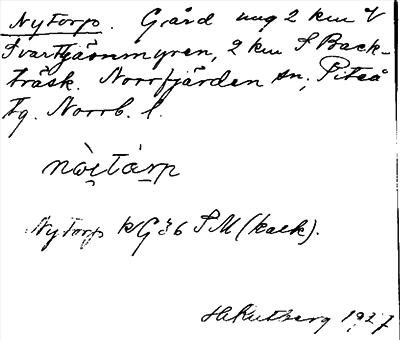 Nytorp. Gård nug 2 km V
Svartjäonmyren, 2 km S Back-
träsk. Norrfjärden sn, Piteå
tg. Norrb. l.
nòetárp
Nytorp kG36 SM (kack).
H. Rutberg 1927